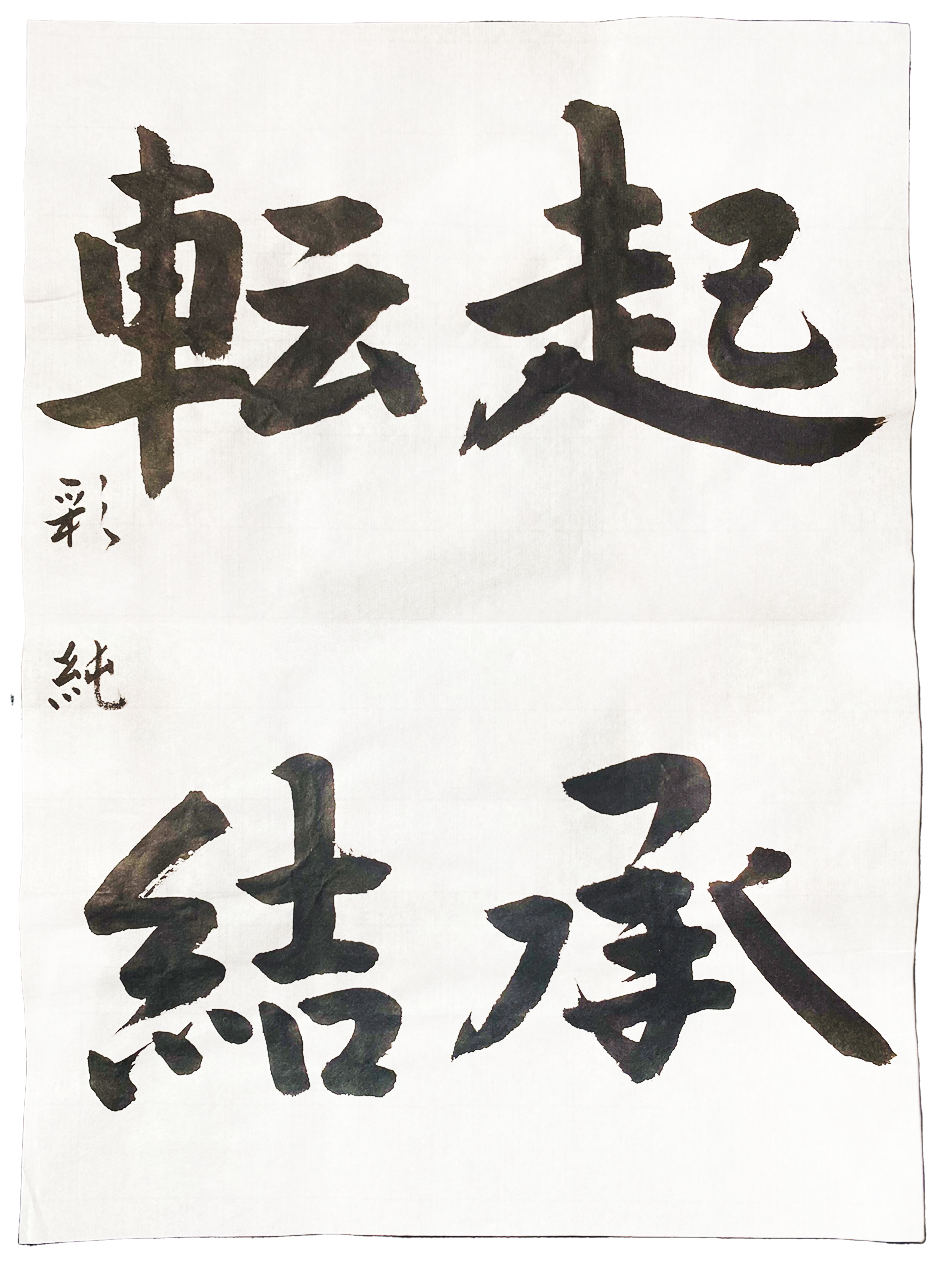 起承
転結
彩純